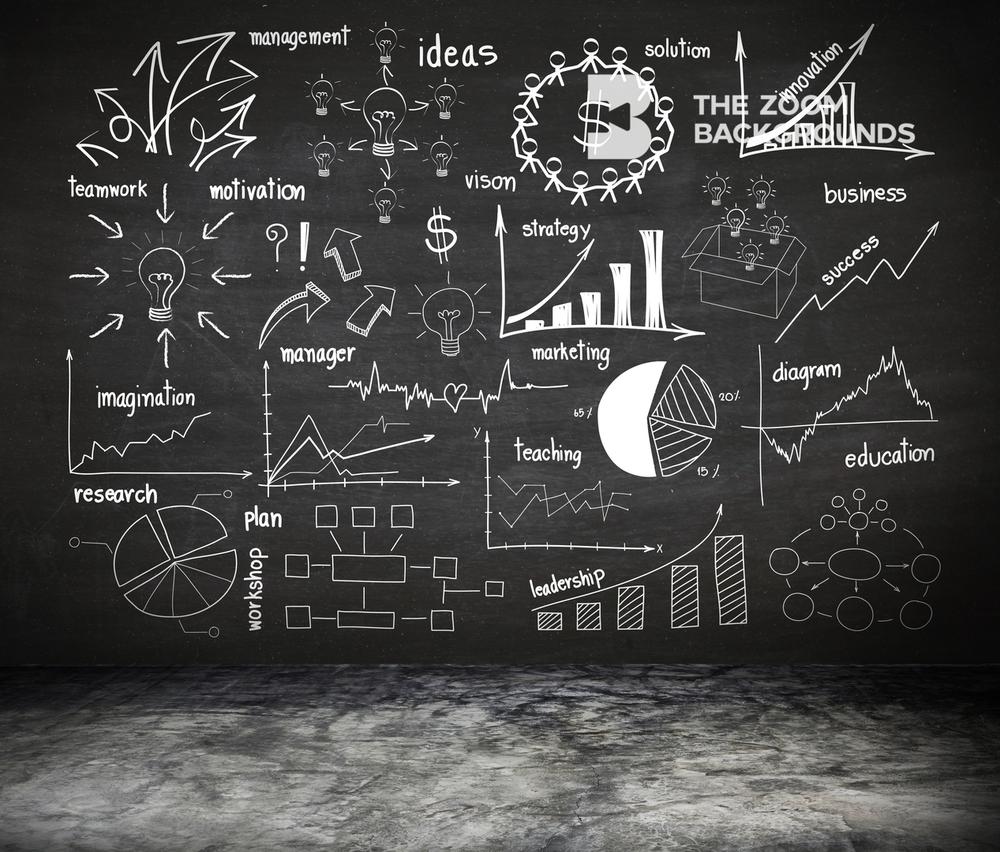 management
ideas
solution
innovation
THE ZOOM
BACKGROUNDS
$
teamwork
motivation
vison
business
? !
$
strategy
success
manager
marketing
imagination
diagram
65%
20%
15 %
y
teaching
education
research
plan
x
workshop
leadership